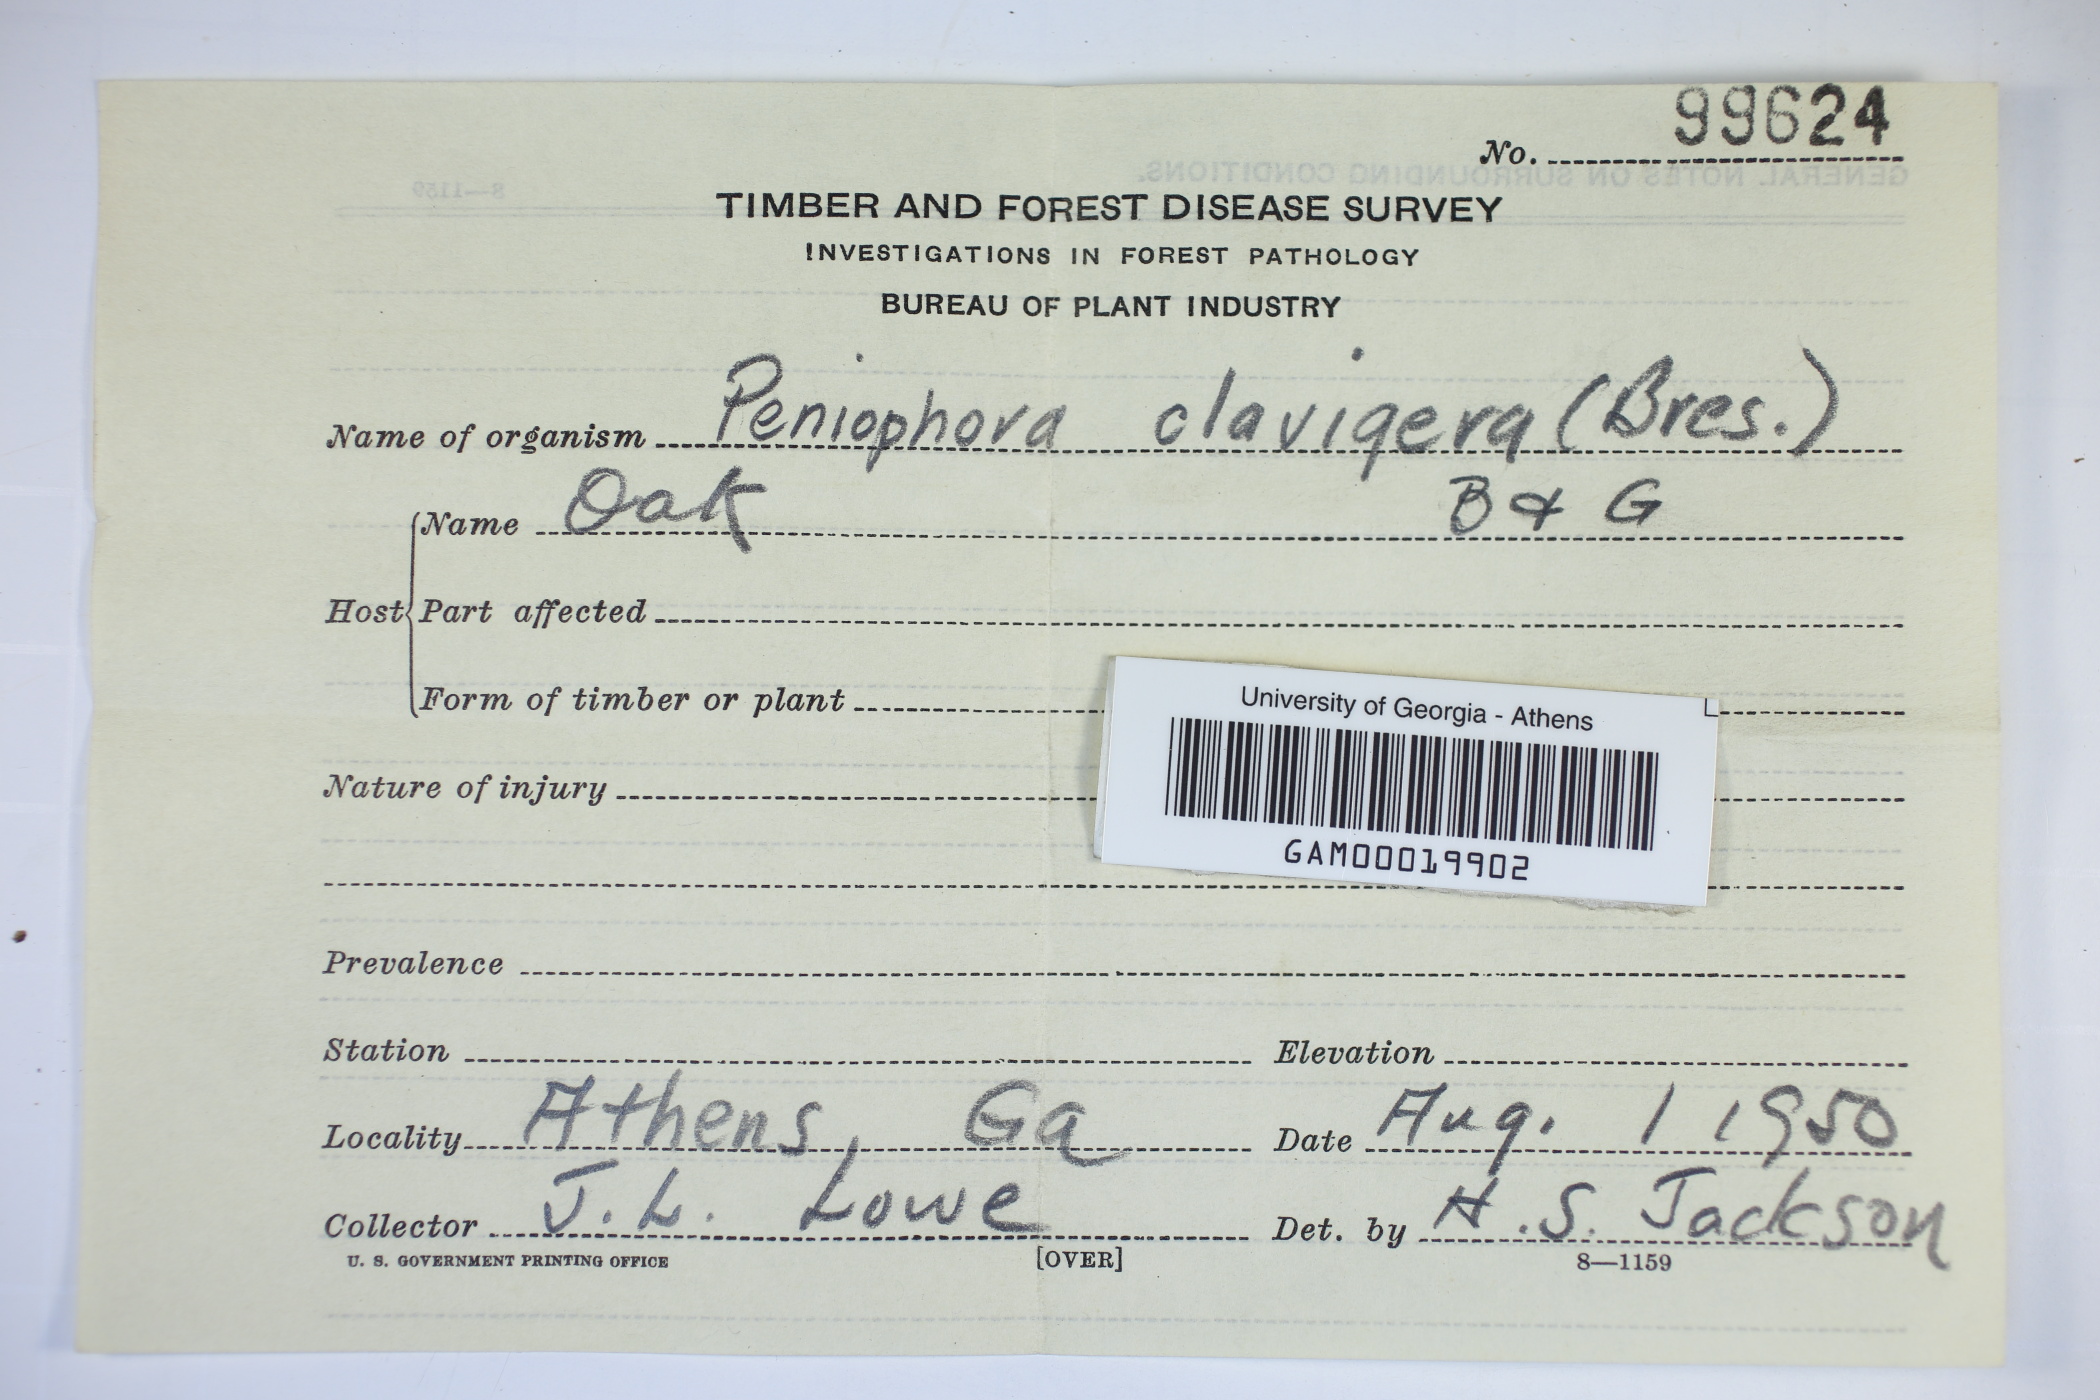 No. 99624
TIMBER AND FOREST DISEASE SURVEY
INVESTIGATIONS IN FOREST PATHOLOGY
BUREAU OF PLANT INDUSTRY
Name of organism Peniophora clavigera (Bres.)
B & G
Host
Name Oak
Part affected
Form of timber or plant
Nature of injury
University of Georgia - Athens
GAM00019902
Prevalence
Station Elevation
Locality Athens, Ga Date Aug. 1 1950
Collector J. L. Lowe Det. by H. S. Jackson
U. S. GOVERNMENT PRINTING OFFICE [OVER] 8—1159
GENERAL NOTES ON SURROUNDING CONDITIONS.
8—1159